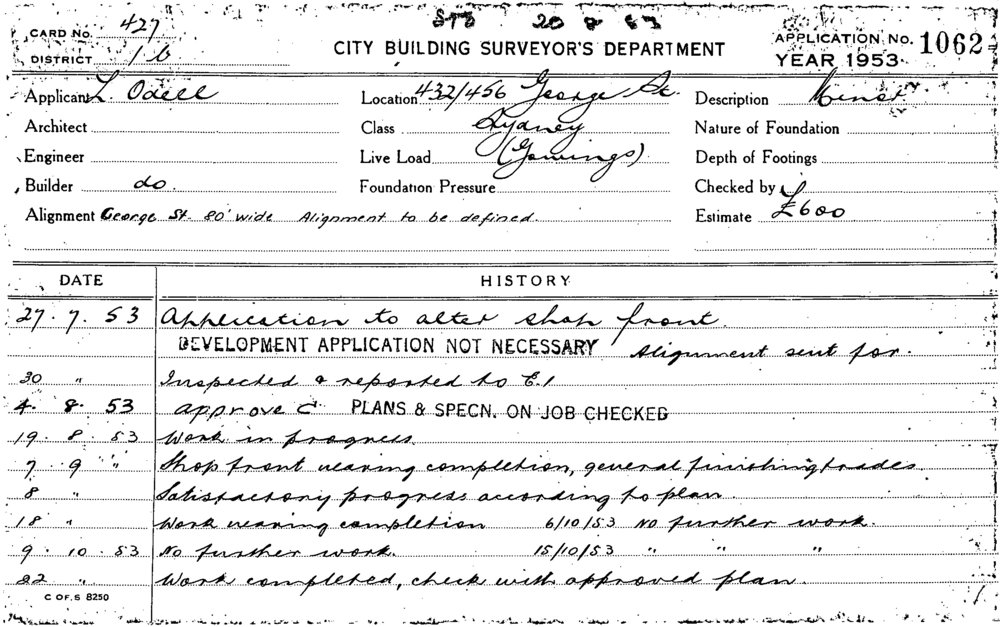 STS 20 8 53
CARD NO. 427
DISTRICT 1b
CITY BUILDING SURVEYOR'S DEPARTMENT
APPLICATION NO. 1062
YEAR 1953
Applicant L Odell
Location 432/456 George St.
Description Minor
Architect
Class Sydney
Nature of Foundation
Engineer
Live Load (Gowings)
Depth of Footings
Builder do.
Foundation Pressure
Checked by
Alignment George St. 80' wide Alignment to be defined.
Estimate £600
DATE HISTORY
27. 7. 53 Application to alter shop front.
DEVELOPMENT APPLICATION NOT NECESSARY Alignment sent for.
30 " Inspected & reported to E.1
4. 8. 53 Approve C PLANS & SPECN. ON JOB CHECKED
19. 8. 53 Work in progress
7. 9 " Shop front nearing completion, general finishing trades
8 " Satisfactory progress according to plan.
18 " Work nearing completion 6/10/53 No further work.
9. 10. 53 No further work. 15/10/53 " " "
22 " Work completed, check with approved plan.
C OF.S 8250